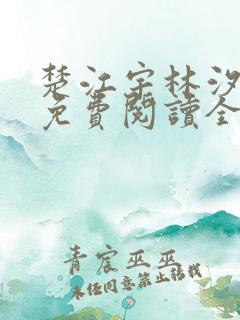 楚江宇林汐
免費閱讀全
青宸巫巫
未經同意禁止轉載